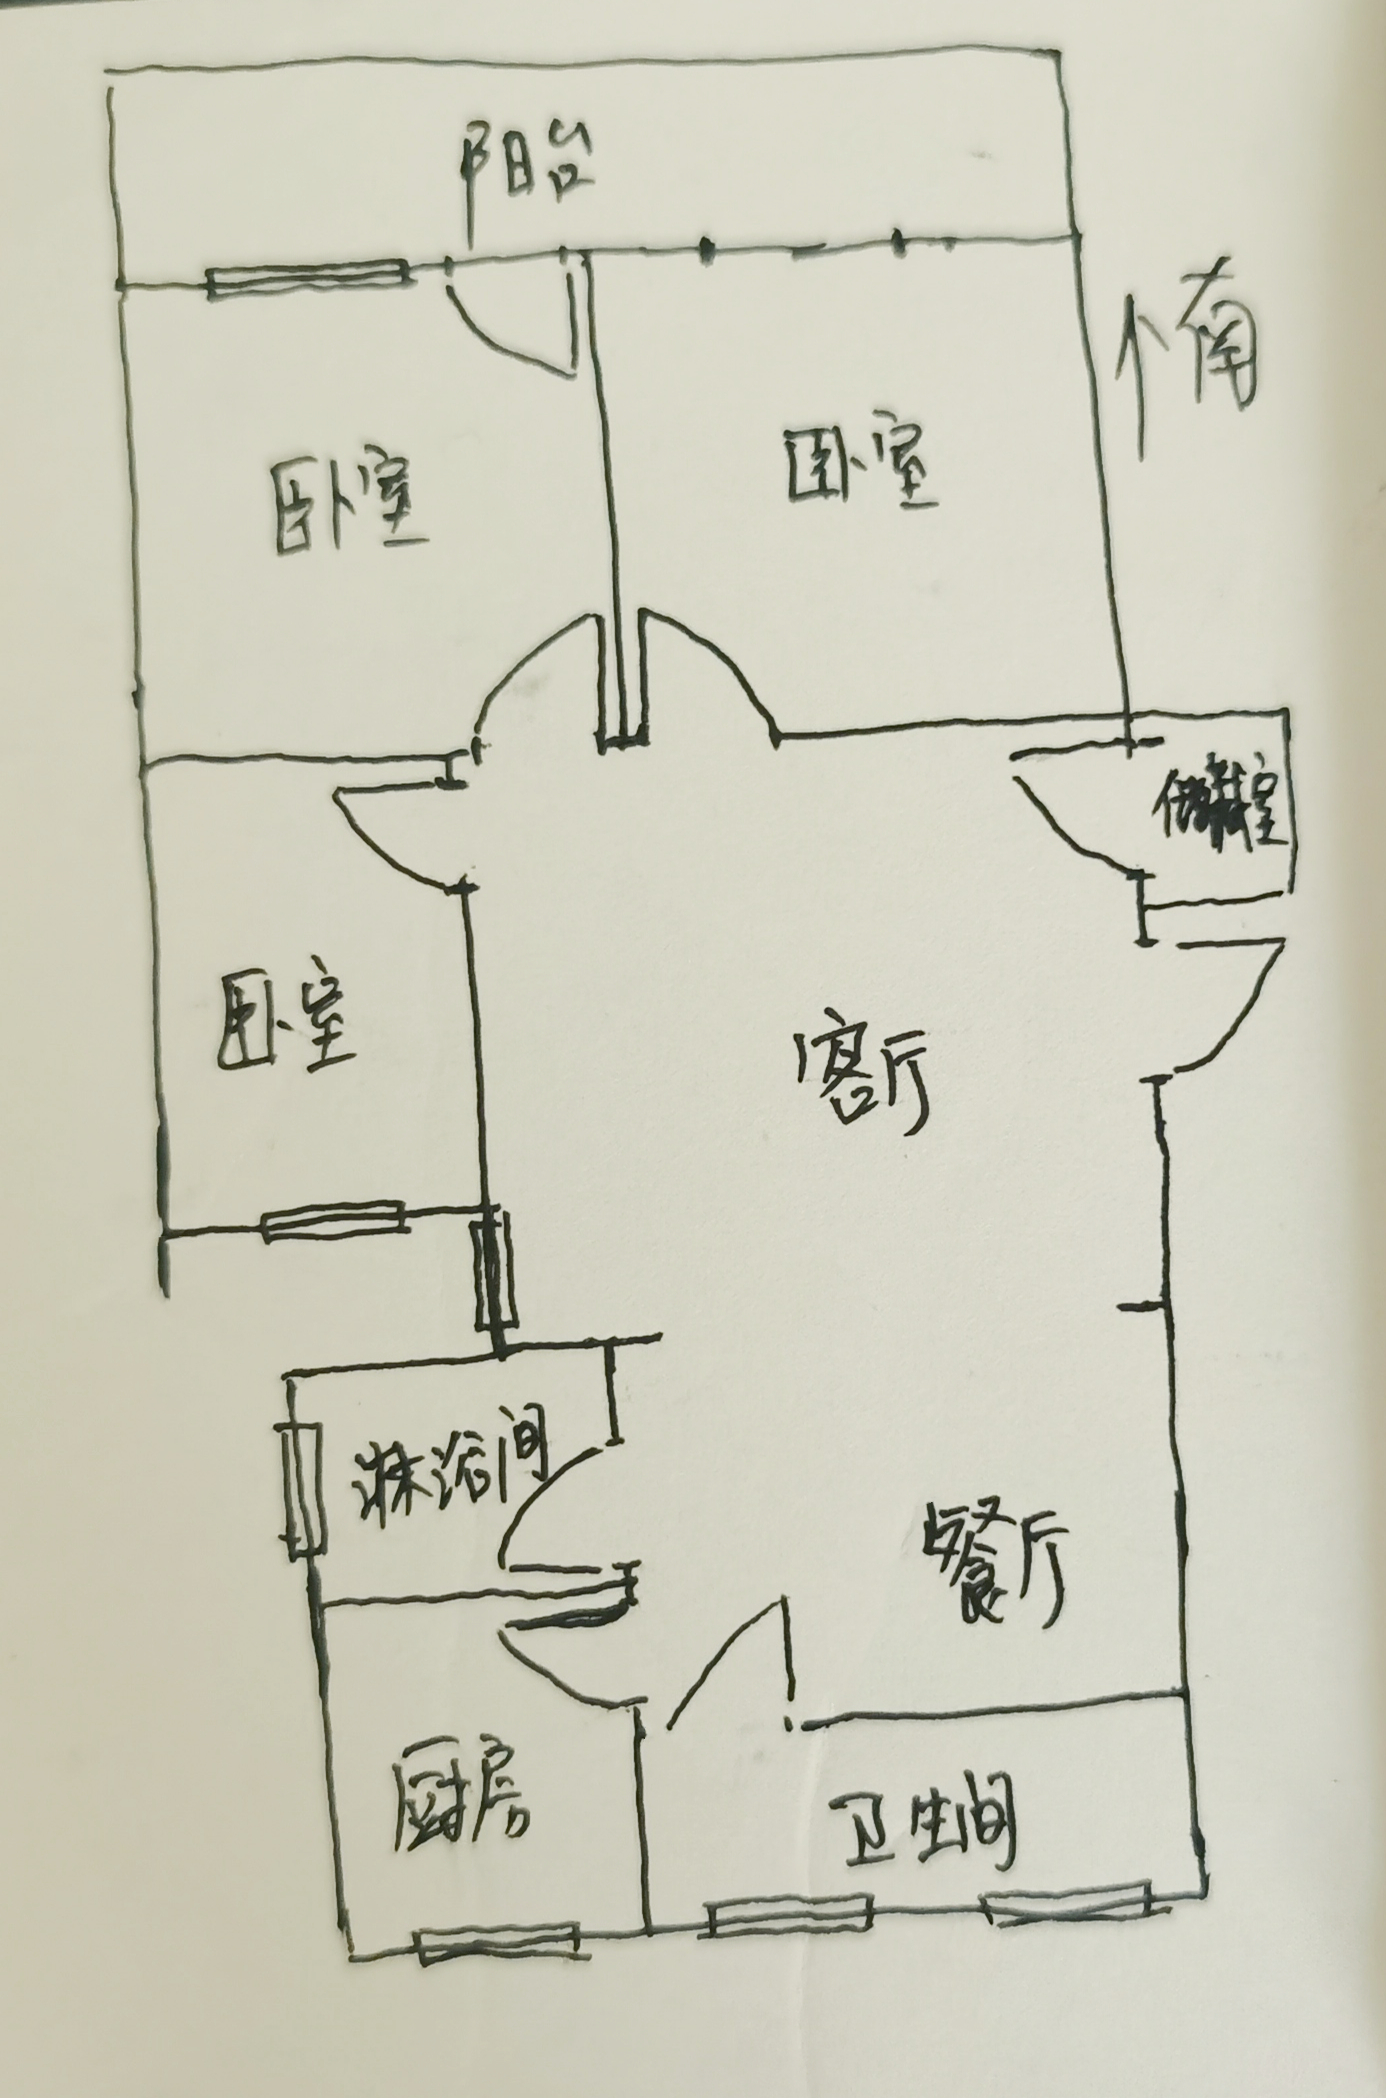 阳台
南
卧室
卧室
储藏室
卧室
客厅
淋浴间
餐厅
厨房
卫生间